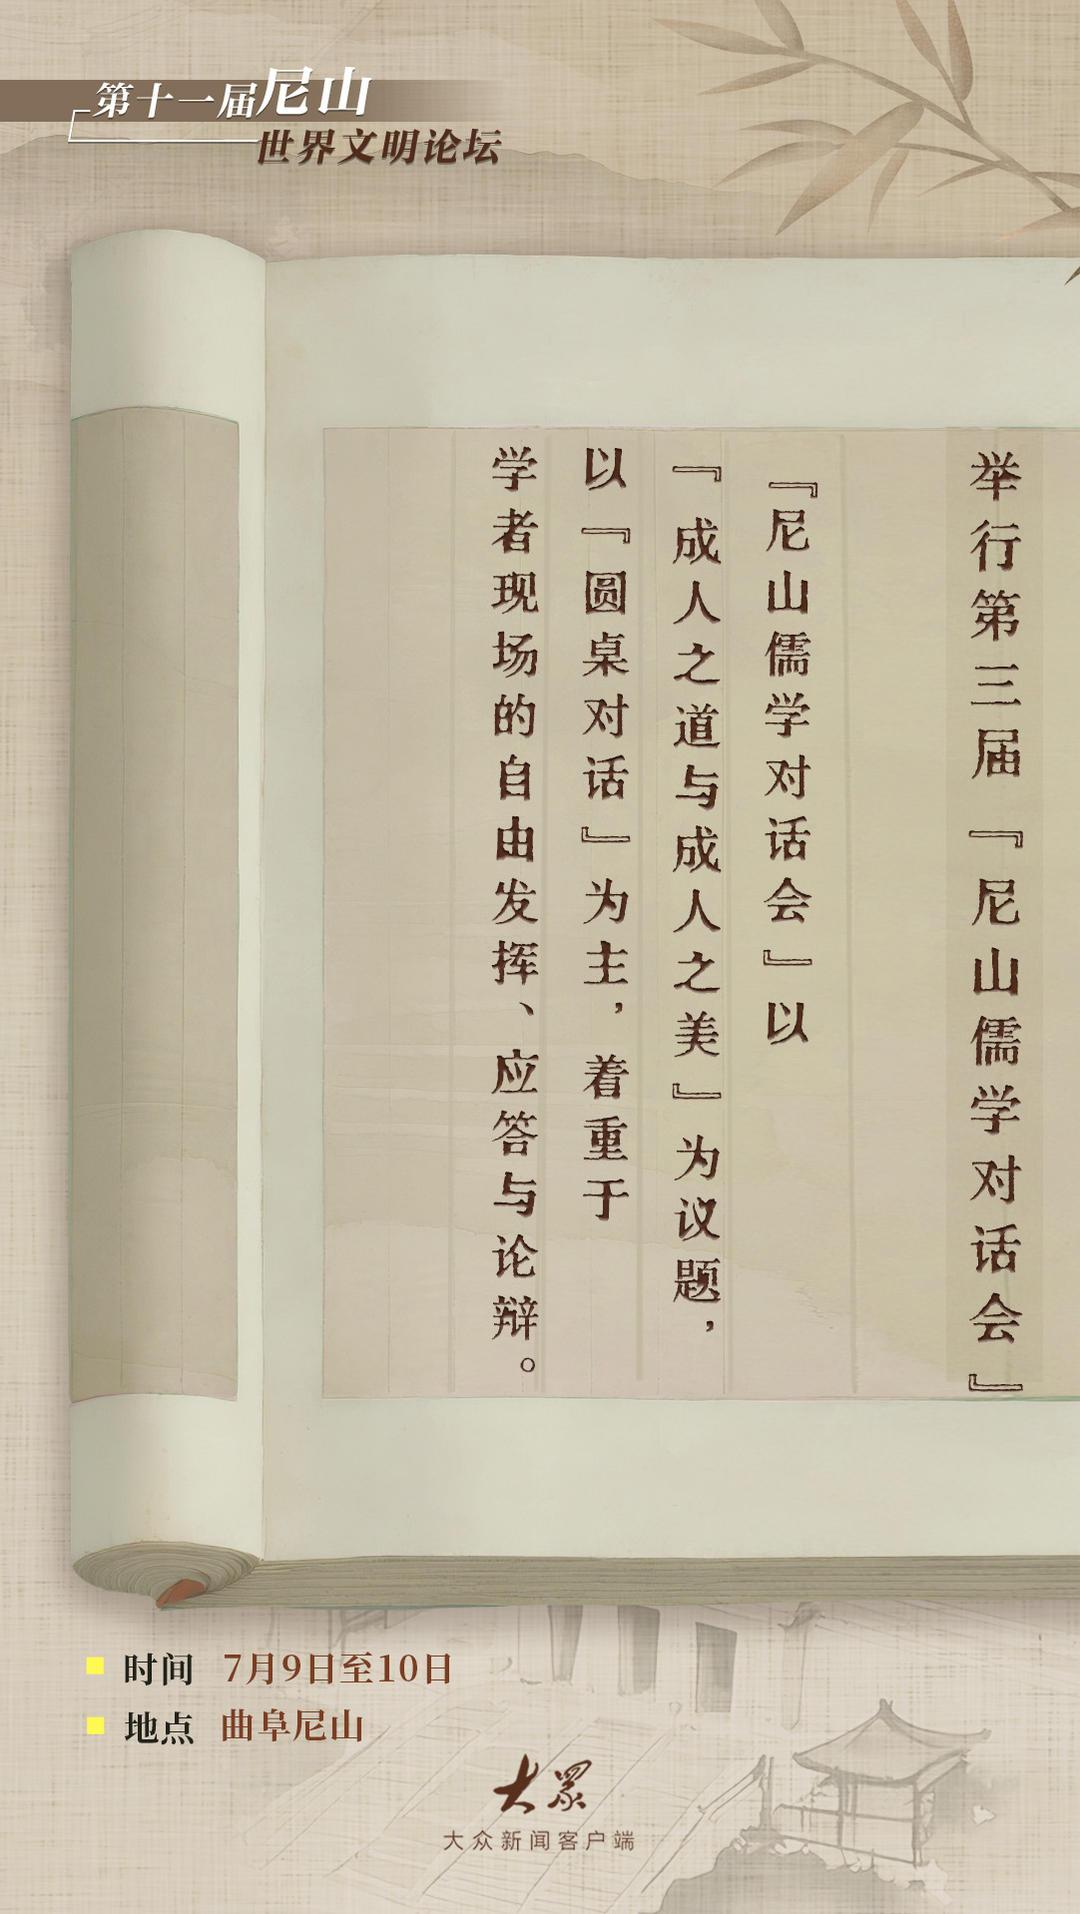 第十一届尼山
世界文明论坛
举行第三届『尼山儒学对话会』
『尼山儒学对话会』以
『成人之道与成人之美』为议题，
以『圆桌对话』为主，着重于
学者现场的自由发挥、应答与论辩。
时间 7月9日至10日
地点 曲阜尼山
大众
大众新闻客户端